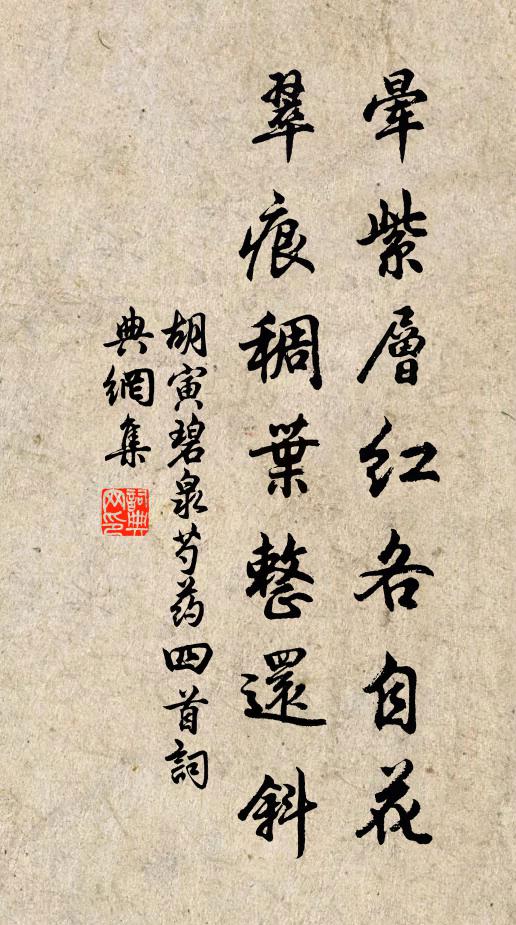 暈紫層紅各自花
翠痕稠葉整還斜
胡寅碧泉芍药四首詞
典網集
詞典网印